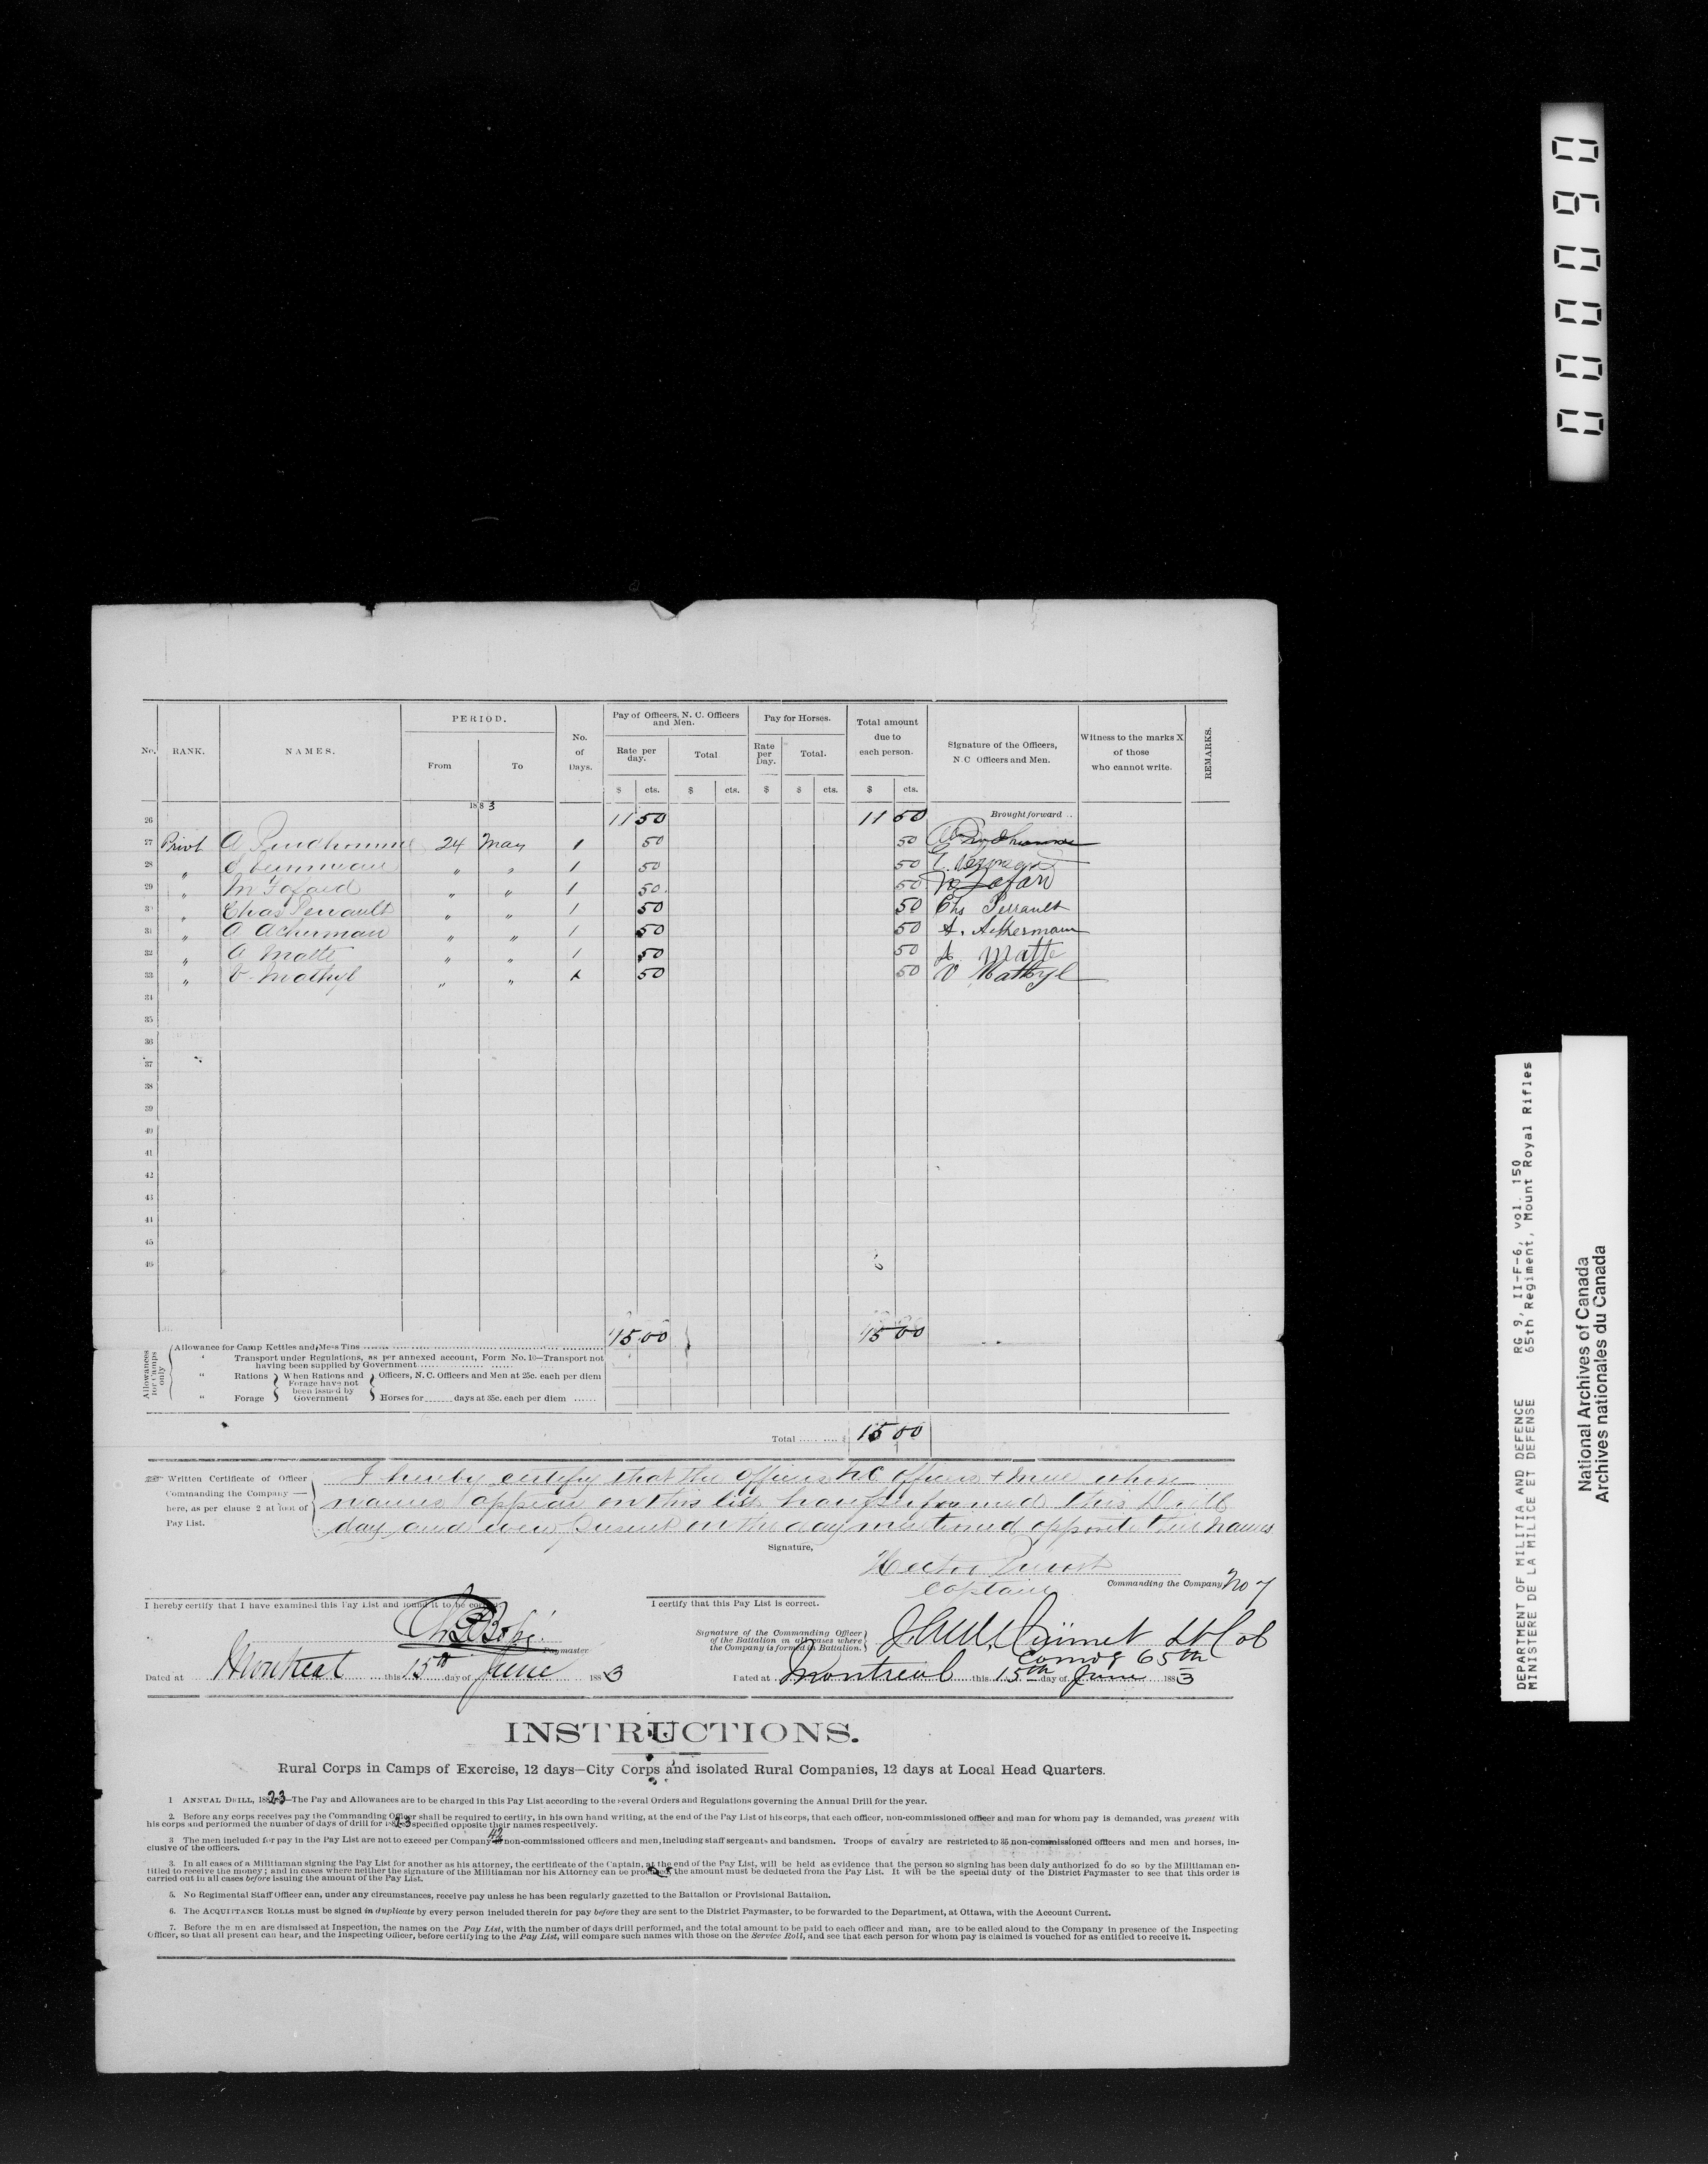 000060
No. RANK. NAMES. PERIOD. No. of Days. Pay of Officers, N. C. Officers and Men. Pay for Horses. Total amount due to each person. Signature of the Officers, N.C Officers and Men. Witness to the marks X of those who cannot write. REMARKS.
From To Rate per day. Total Rate per Day. Total.
$ cts. $ cts. $ $ cts. $ cts.
1883
26 11 50 11 50 Brought forward ..
27 Privt A Prudhomme 24 May 1 50 50 A Prudhomme
28 " " " 1 50 50
29 " M Fafard " " 1 50. 50 M Fafard
30 " Chas Perrault " " 1 50 50 Chs Perrault
31 " A Ackerman " " 1 50 50 A. Ackermann
32 " A Matte " " 1 50 50 A. Matte
33 " V. Mathyl " " 1 50 50 V Mathyl
34
35
36
37
38
39
40
41
42
43
44
45
46
15.00 15 00
Allowances for Camps only
Allowance for Camp Kettles and Mess Tins
" Transport under Regulations, as per annexed account, Form No. 10—Transport not having been supplied by Government
" Rations } When Rations and Forage have not been issued by Government { Officers, N.C. Officers and Men at 25c. each per diem
" Forage Horses for ...... days at 35c. each per diem ......
Total ..... .... $ 15 00
Written Certificate of Officer Commanding the Company — here, as per clause 2 at foot of Pay List.
I hereby certify that the Officers NC Officers & men whose
names appear on this list have performed this Drill
day and were present on the day mentioned opposite their names
Signature,
Captain Commanding the Company No 7
I hereby certify that I have examined this Pay List and found it to be correct.
I certify that this Pay List is correct.
Paymaster
Signature of the Commanding Officer of the Battalion in all cases where the Company is formed in Battalion.
Ouimet Lt Col
Comdg 65th
Dated at Montreal this 15th day of June 1883
Dated at Montreal this 15th day of June 1883
INSTRUCTIONS.
Rural Corps in Camps of Exercise, 12 days—City Corps and isolated Rural Companies, 12 days at Local Head Quarters.
1 ANNUAL DRILL, 1882-3—The Pay and Allowances are to be charged in this Pay List according to the several Orders and Regulations governing the Annual Drill for the year.
2. Before any corps receives pay the Commanding Officer shall be required to certify, in his own hand writing, at the end of the Pay List of his corps, that each officer, non-commissioned officer and man for whom pay is demanded, was present with
his corps and performed the number of days of drill for 1882-3 specified opposite their names respectively.
3 The men included for pay in the Pay List are not to exceed per Company 42 non-commissioned officers and men, including staff sergeants and bandsmen. Troops of cavalry are restricted to 35 non-commissioned officers and men and horses, in-
clusive of the officers.
3. In all cases of a Militiaman signing the Pay List for another as his attorney, the certificate of the Captain, at the end of the Pay List, will be held as evidence that the person so signing has been duly authorized to do so by the Militiaman en-
titled to receive the money; and in cases where neither the signature of the Militiaman nor his Attorney can be produced, the amount must be deducted from the Pay List. It will be the special duty of the District Paymaster to see that this order is
carried out in all cases before issuing the amount of the Pay List.
5. No Regimental Staff Officer can, under any circumstances, receive pay unless he has been regularly gazetted to the Battalion or Provisional Battalion.
6. The ACQUITTANCE ROLLS must be signed in duplicate by every person included therein for pay before they are sent to the District Paymaster, to be forwarded to the Department, at Ottawa, with the Account Current.
7. Before the men are dismissed at Inspection, the names on the Pay List, with the number of days drill performed, and the total amount to be paid to each officer and man, are to be called aloud to the Company in presence of the Inspecting
Officer, so that all present can hear, and the Inspecting Officer, before certifying to the Pay List, will compare such names with those on the Service Roll, and see that each person for whom pay is claimed is vouched for as entitled to receive it.
DEPARTMENT OF MILITIA AND DEFENCE RG 9, II-F-6, vol. 150
MINISTERE DE LA MILICE ET DEFENSE 65th Regiment, Mount Royal Rifles
National Archives of Canada
Archives nationales du Canada